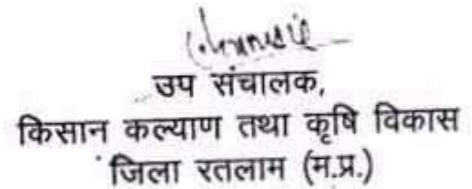 उप संचालक,
किसान कल्याण तथा कृषि विकास
जिला रतलाम (म.प्र.)